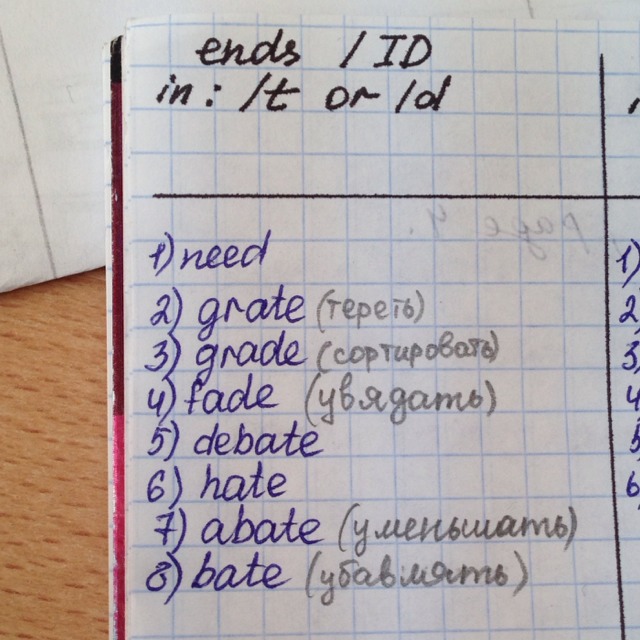 ends /ID
in: /t or /d
1) need
2) grate (тереть)
3) grade (сортировать)
4) fade (увядать)
5) debate
6) hate
7) abate (уменьшать)
8) bate (убавлять)
1)
2
3)
4
5
6